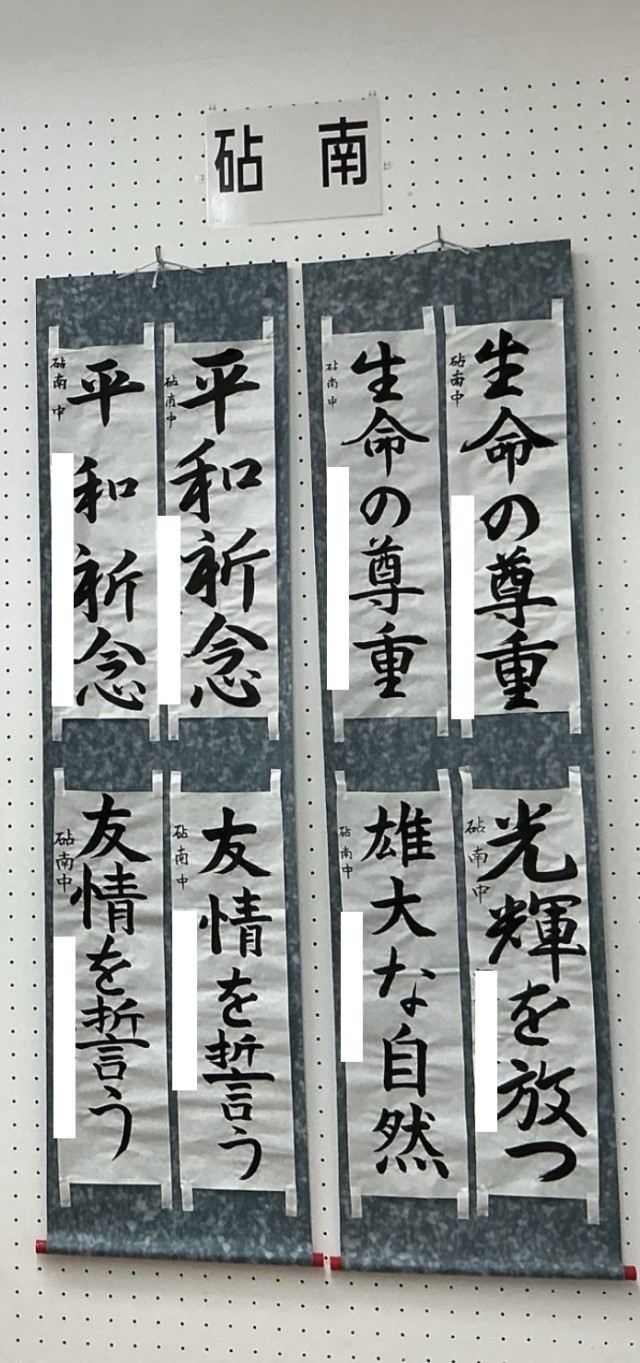 砧 南
生命の尊重
砧南中
生命の尊重
砧南中
光輝を放つ
砧南中
雄大な自然
砧南中
平和祈念
砧南中
平和祈念
砧南中
友情を誓う
砧南中
友情を誓う
砧南中